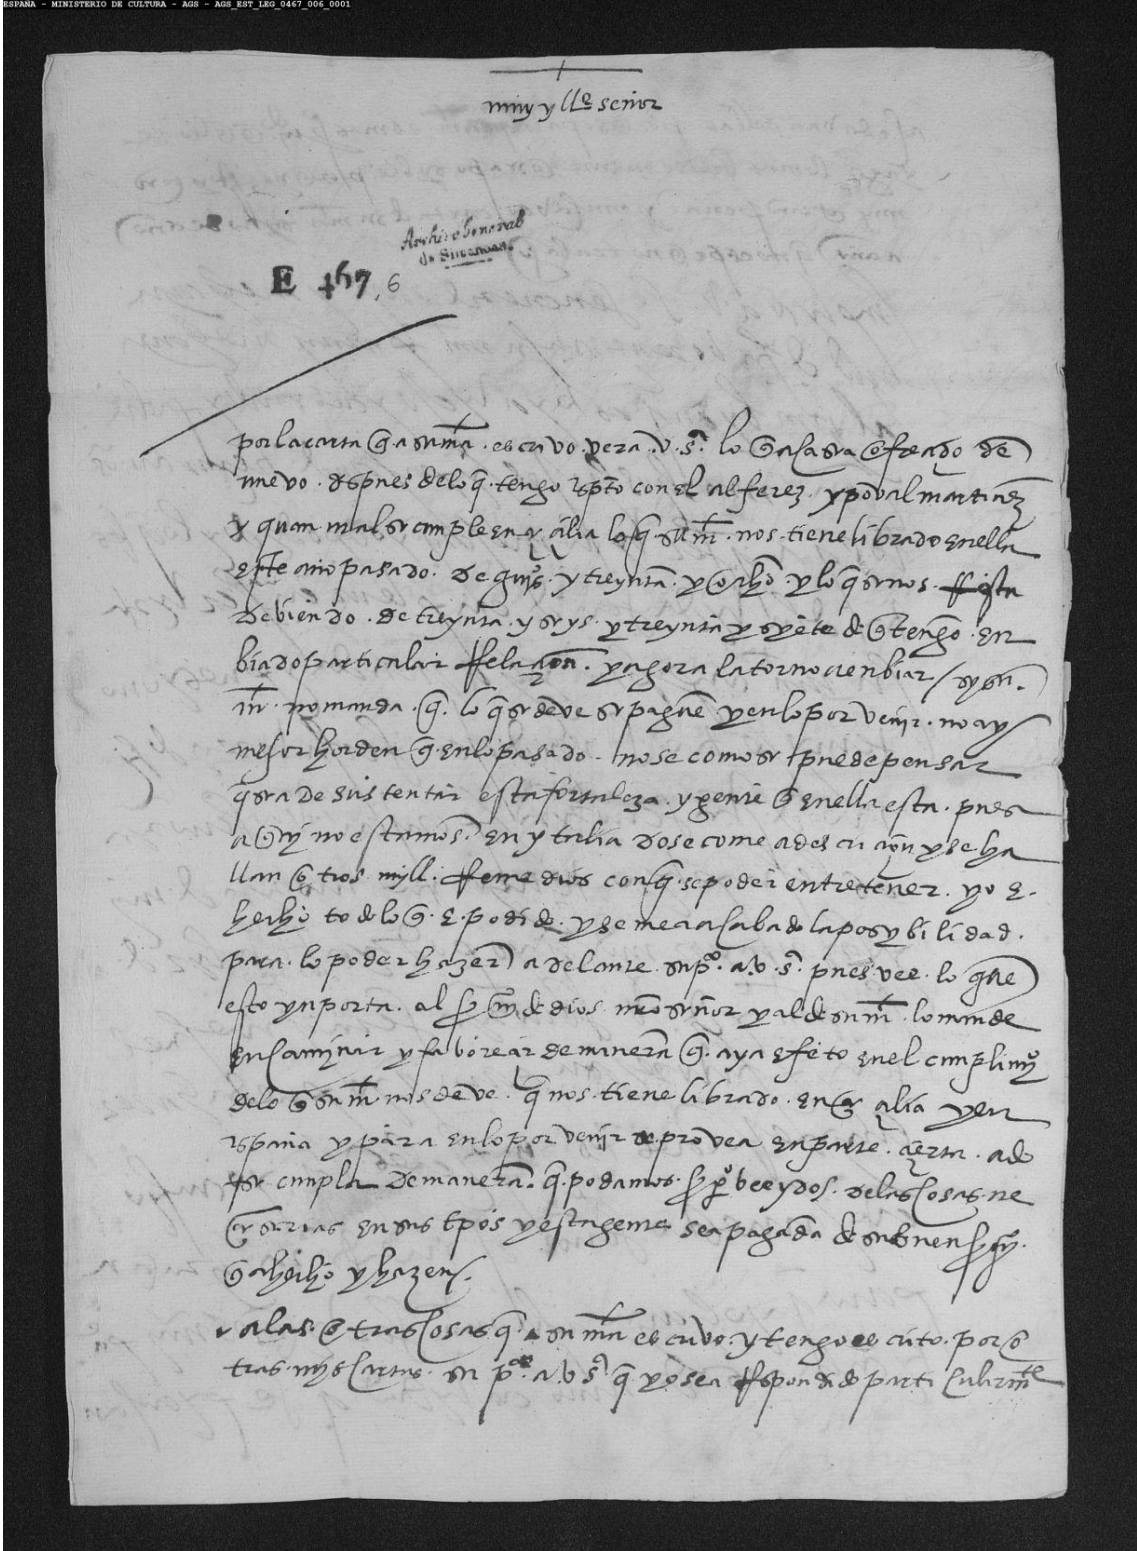 ESPAÑA - MINISTERIO DE CULTURA - AGS - AGS_EST_LEG_0467_006_0001
muy yllo señor
Archivo General
de Simancas
E 467, 6
por la carta q a su mat escrivo vera v. sa lo q aca sea ofreçido de
nuevo despues de lo q tengo espto con el alferez
y quan mal se cumple en lo q su mt nos tiene librado en ella
este año pasado de quios y treynta y ocho y lo q se nos esta
deviendo de treynta y seys y treynta y syete de q tengo en
biado particular Relaçion y agora la torno a enbiar / sy su
mt no manda q lo q se deve se pague y en lo por venir no ay
mejor horden q en lo pasado no se como se puede pensar
q sea de sustentar esta fortaleza y gente q en ella esta pues
aqui no estamos en ytalia do se come a descriçion y se ha
llan otros myll Remedios con q se poder entretener yo e
hecho todo lo q e podido y se me a acabado la posybilidad
para lo poder hazer adelante supco a v. sa pues vee lo que
esto ynporta al de dios nro señor y al de su mt lo mande
encamynar y faborear de manera q aya efeto en el cumplimyo
de lo q su mt nos deve q nos tiene librado en y en
españa y para en lo por venir se provea en parte çierta ado
se cumpla de manera q podamos ser probeeydos de las cosas ne
çesarias en sus tpos y esta gente sea pagada de su buen
q a hecho y hazen
a las otras cosas q a su mat escrivo y tengo escrito por o
tras mys cartas supco a v sa q yo sea Respondido particularmte